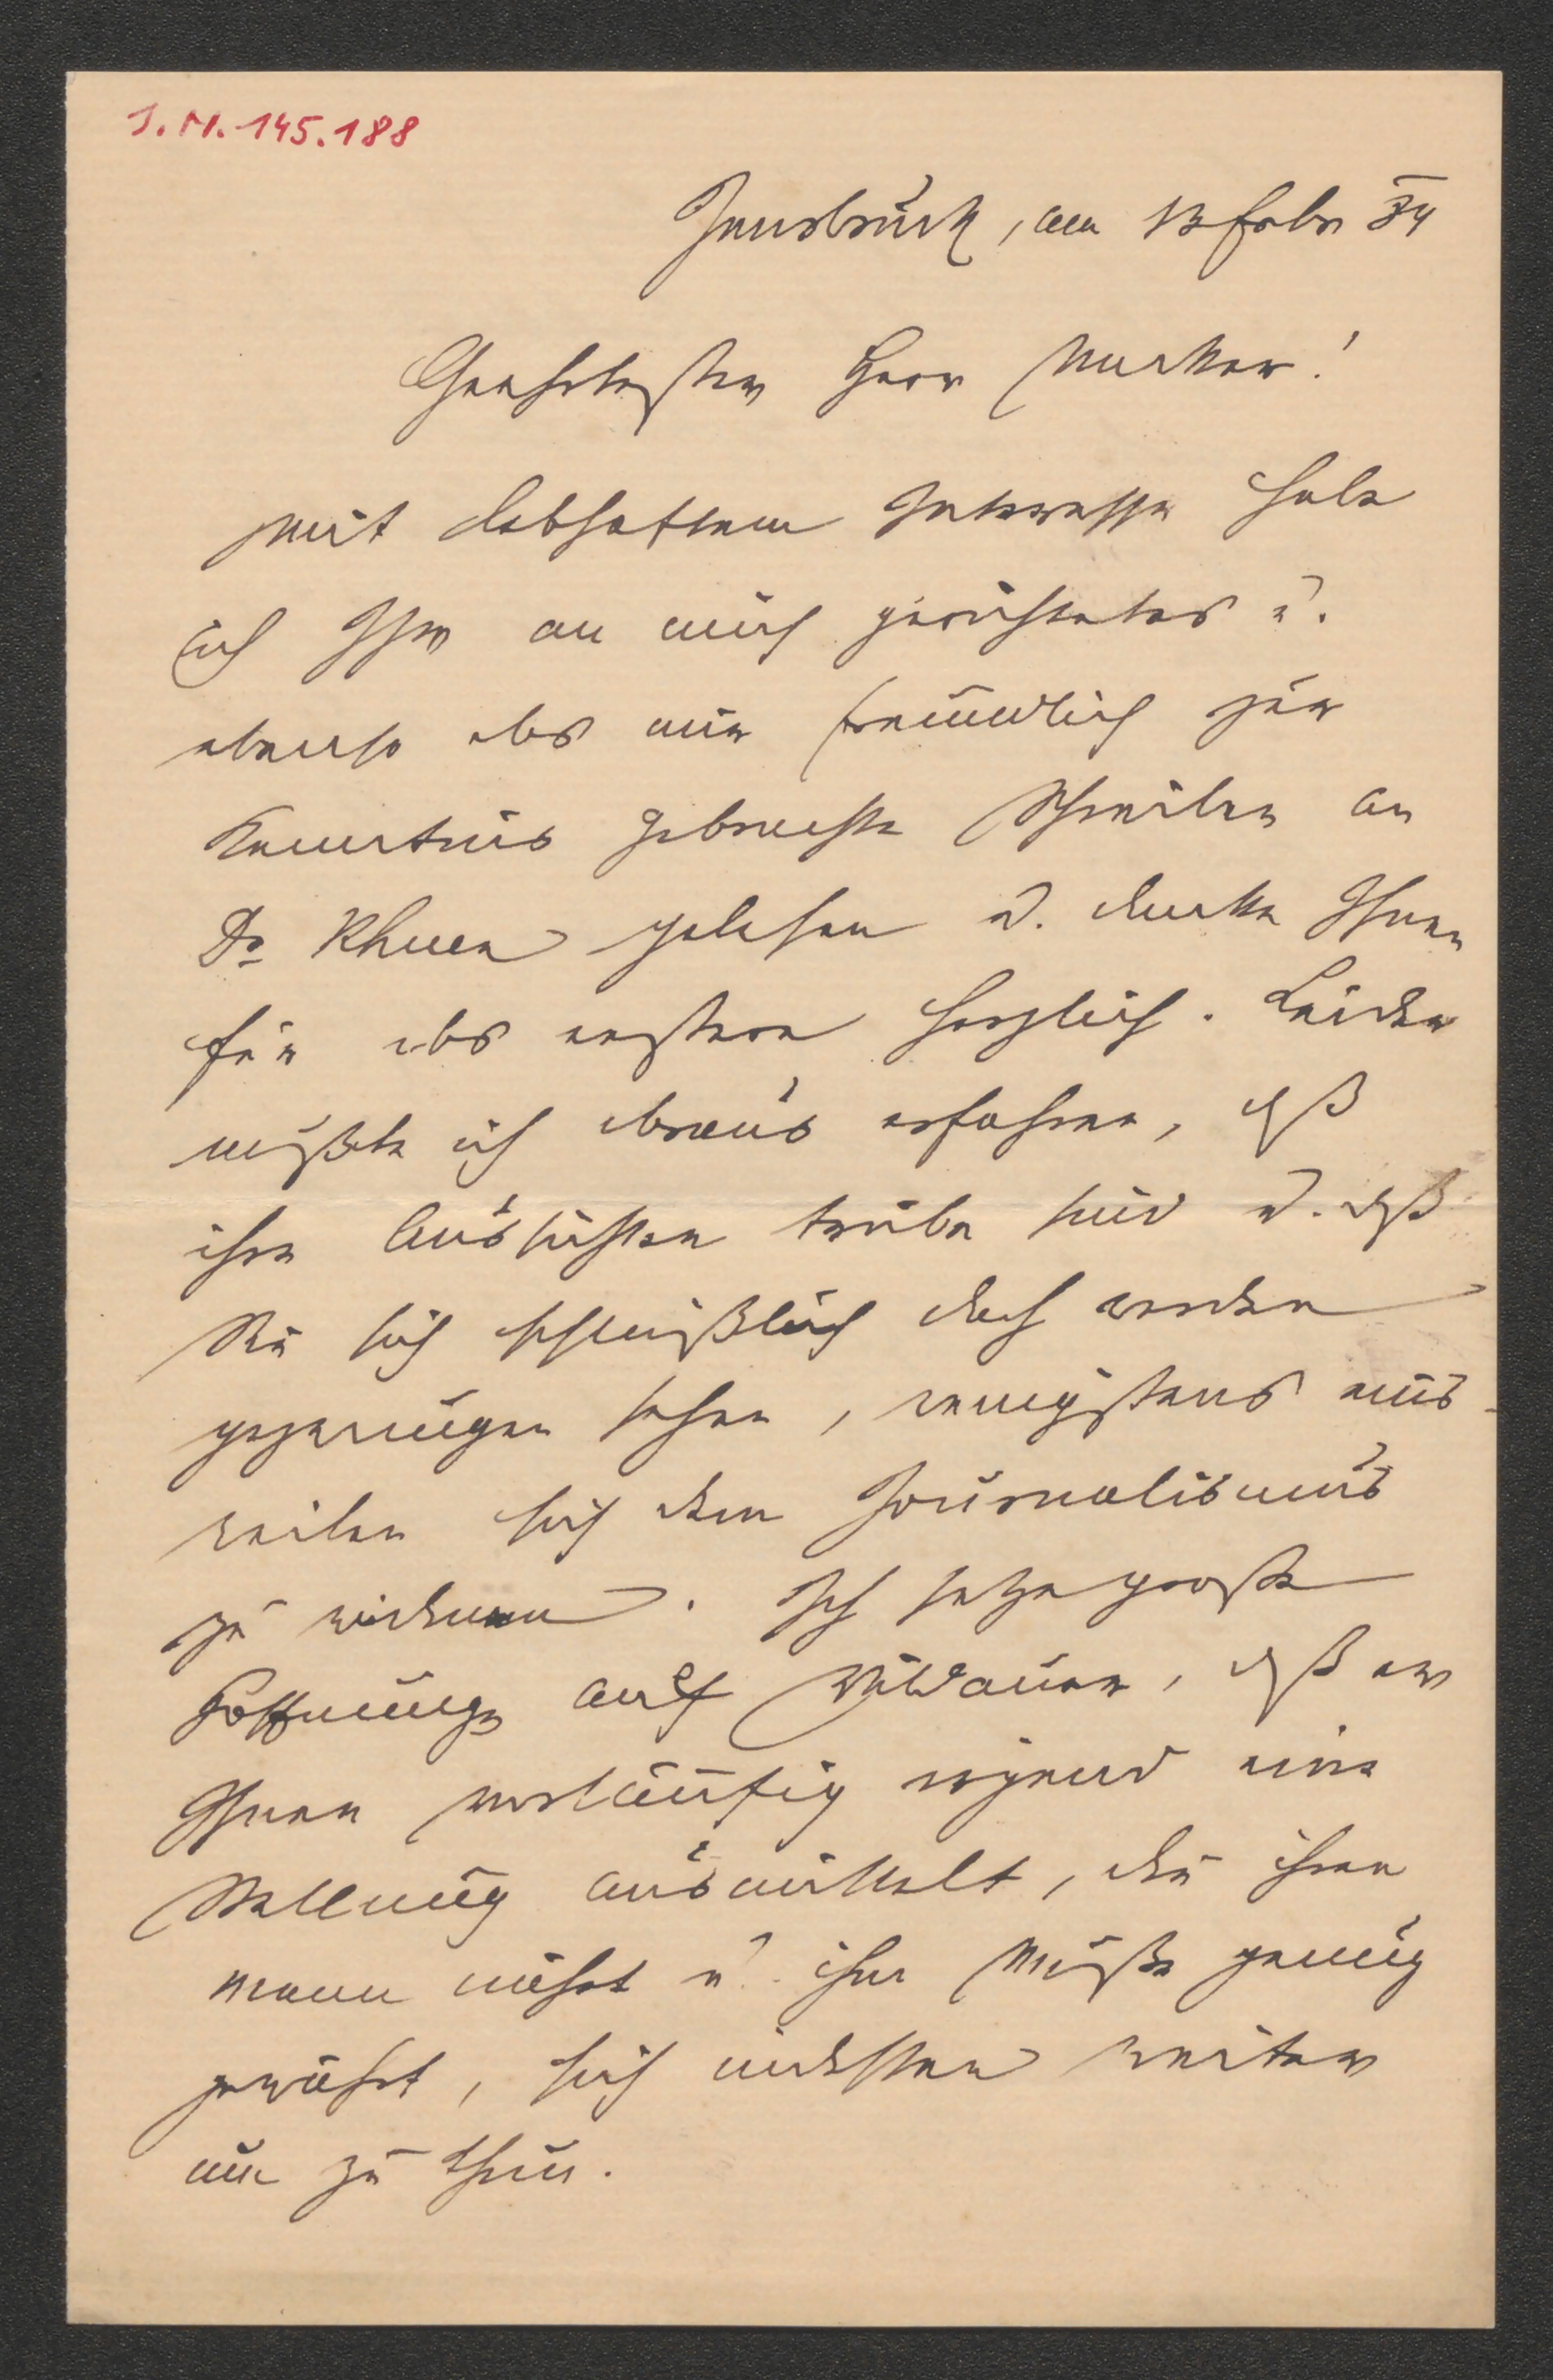 J.N. 145.188
Innsbruck, am 13 Febr 84
Geehrtester Herr Necker!
Mit lebhaftem Interesse habe
ich Ihr an mich gerichtetes u.
ebenso das mir freundlich zur
Kenntnis gebrachte Schreiben an
Dr Khuen gelesen u. danke Ihnen
für das erstere herzlich. Leider
mußte ich draus erfahren, dß
ihre Aussichten trübe sind u. dß
Sie sich schließlich doch werden
gezwungen sehen, wenigstens aus-
weilen sich dem Journalismus
zu widmen. Ich setze große
Hoffnung auf Wildauer, dß er
Ihnen vorläufig irgend eine
Stellung ausmittelt, die ihren
Mann nährt u. ihm Muße genug
gewährt, sich indessen weiter
um zu thun.